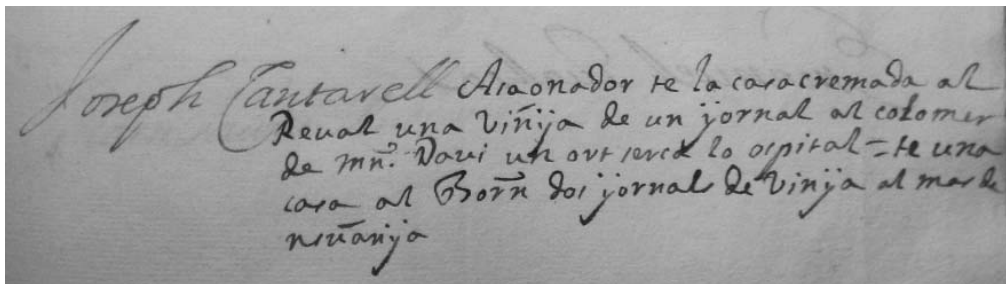 Joseph Cantarell Asaonador te la casa cremada al
Reval una viñija de un jornal al colomer
de mn.º Davi un ort serca lo ospital = te una
casa al Born dos jornals de vinija al mas de